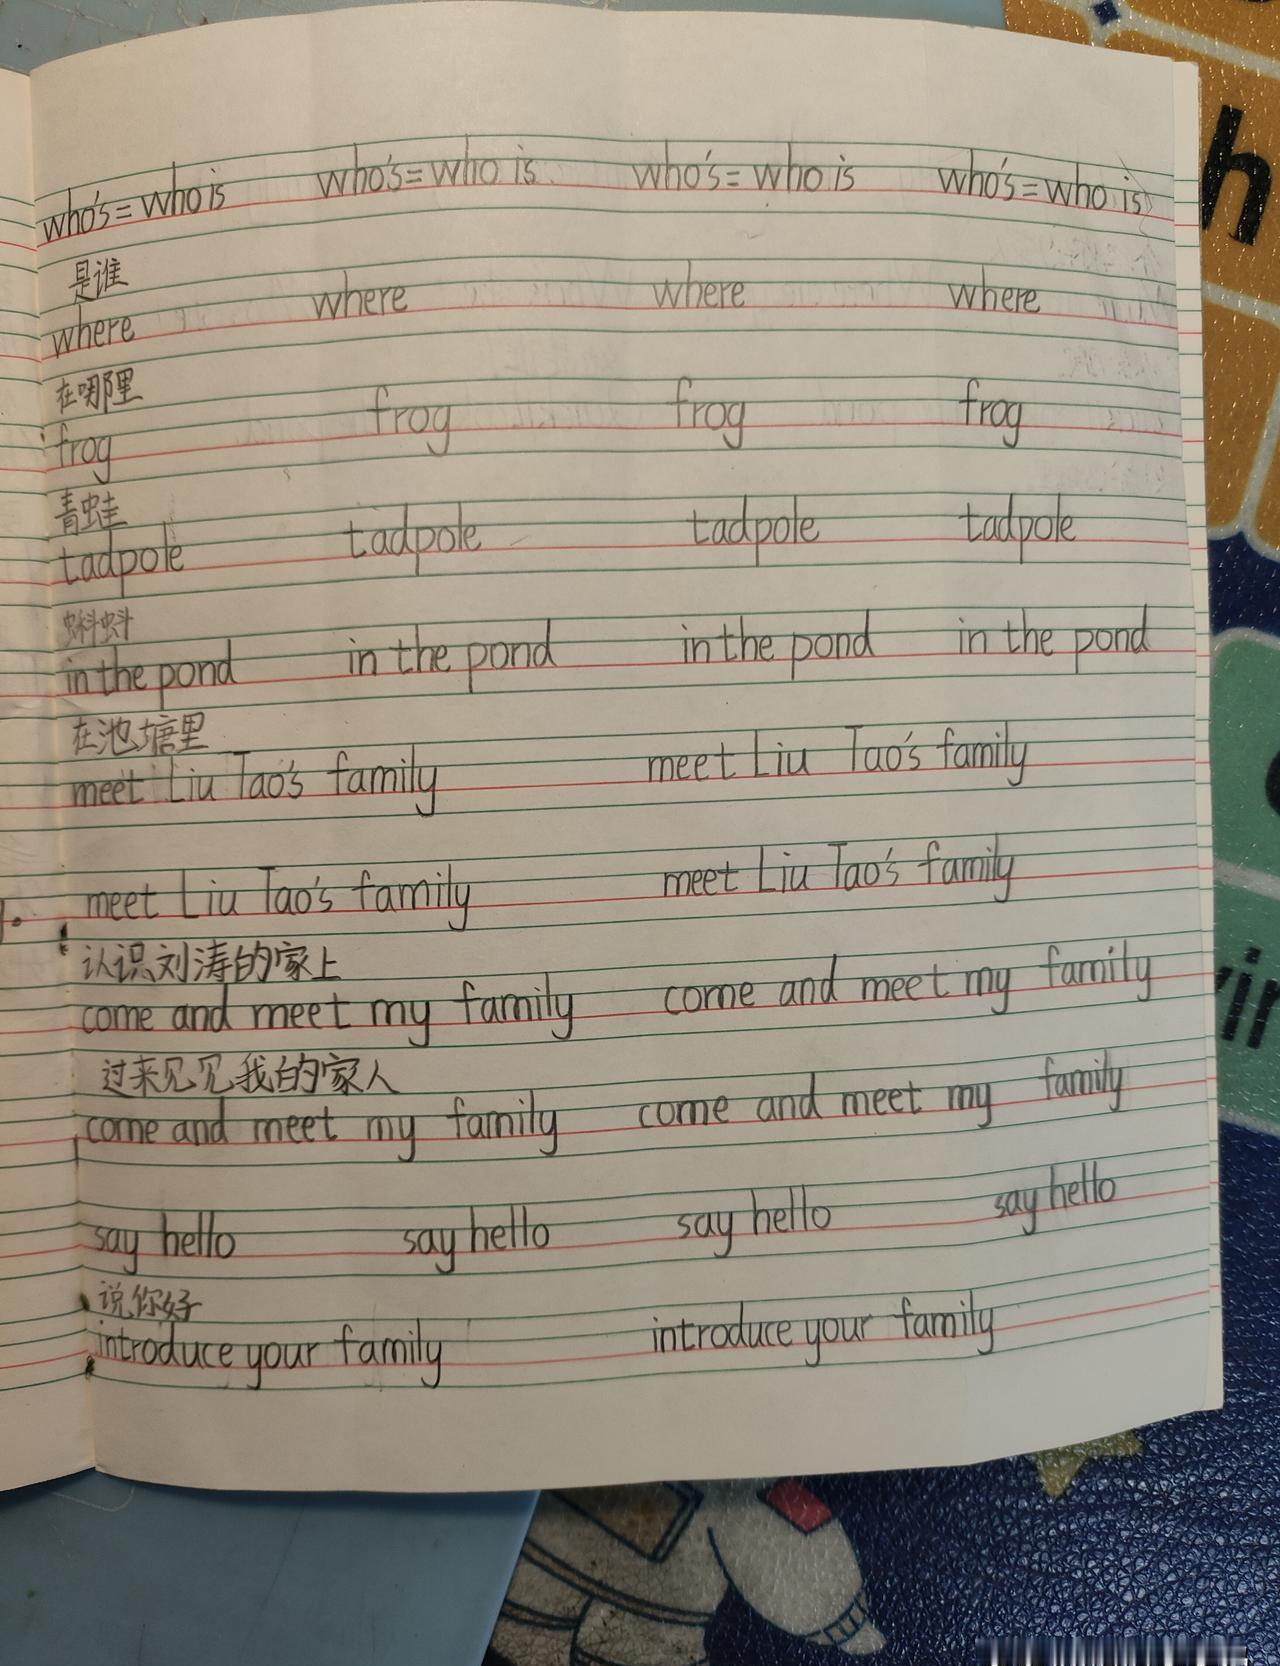 who's = who is who's = who is who's = who is who's = who is
是谁
where where where where
在哪里
frog frog frog frog
青蛙
tadpole tadpole tadpole tadpole
蝌蚪
in the pond in the pond in the pond in the pond
在池塘里
meet Liu Tao's family meet Liu Tao's family
meet Liu Tao's family meet Liu Tao's family
认识刘涛的家上
come and meet my family come and meet my family
过来见见我的家人
come and meet my family come and meet my family
say hello say hello say hello say hello
说你好
introduce your family introduce your family
h